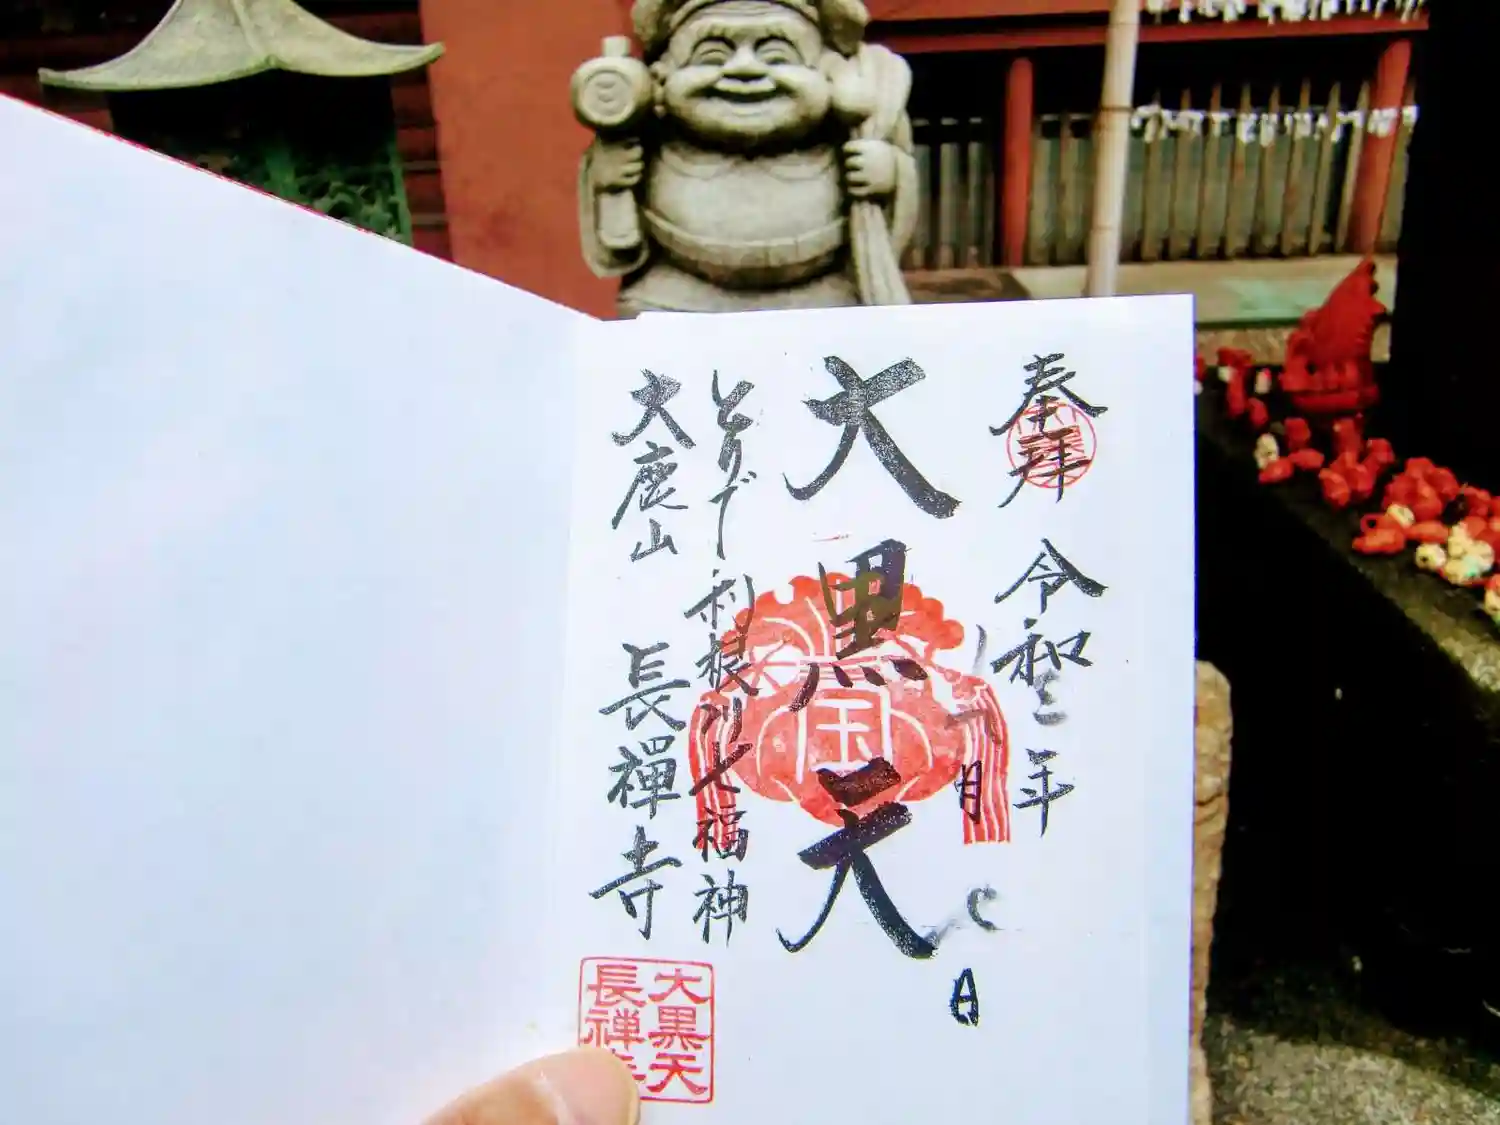 奉拝
令和三年
月
日
大黒天
とりで利根川七福神
大鹿山 長禪寺
宝
大黒天
長禅寺